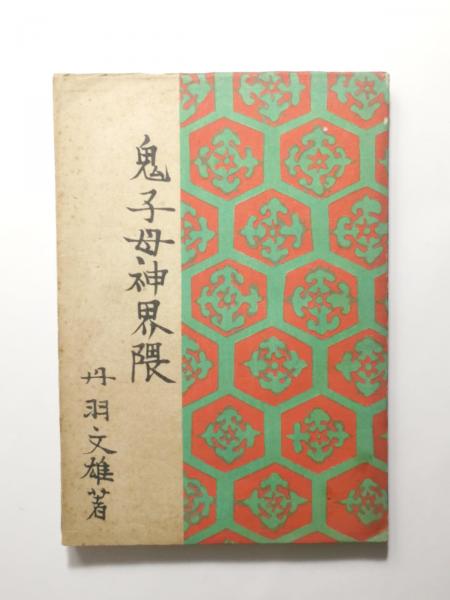 鬼子母神界隈
丹羽文雄著